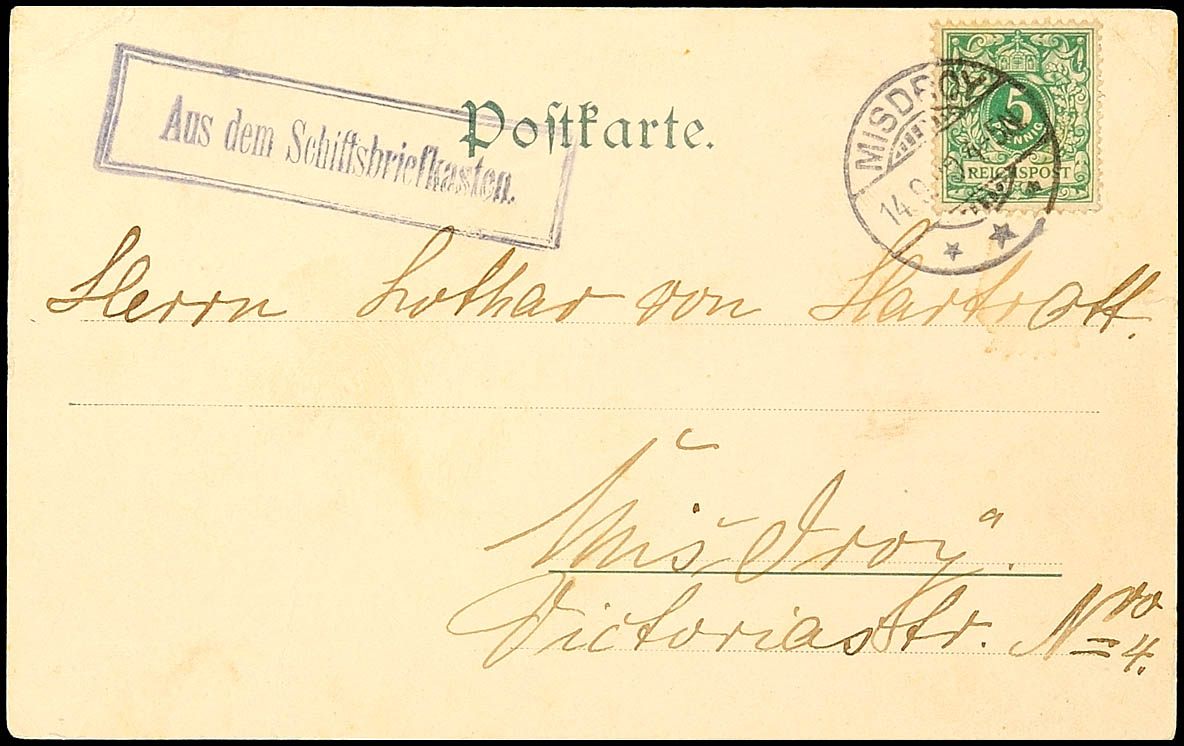 Aus dem Schiffsbriefkasten.
Postkarte.
5
REICHSPOST
MISDROY
14.
Herrn Lothar von Hartrott.
Misdroy.
Victoriastr. No 4.